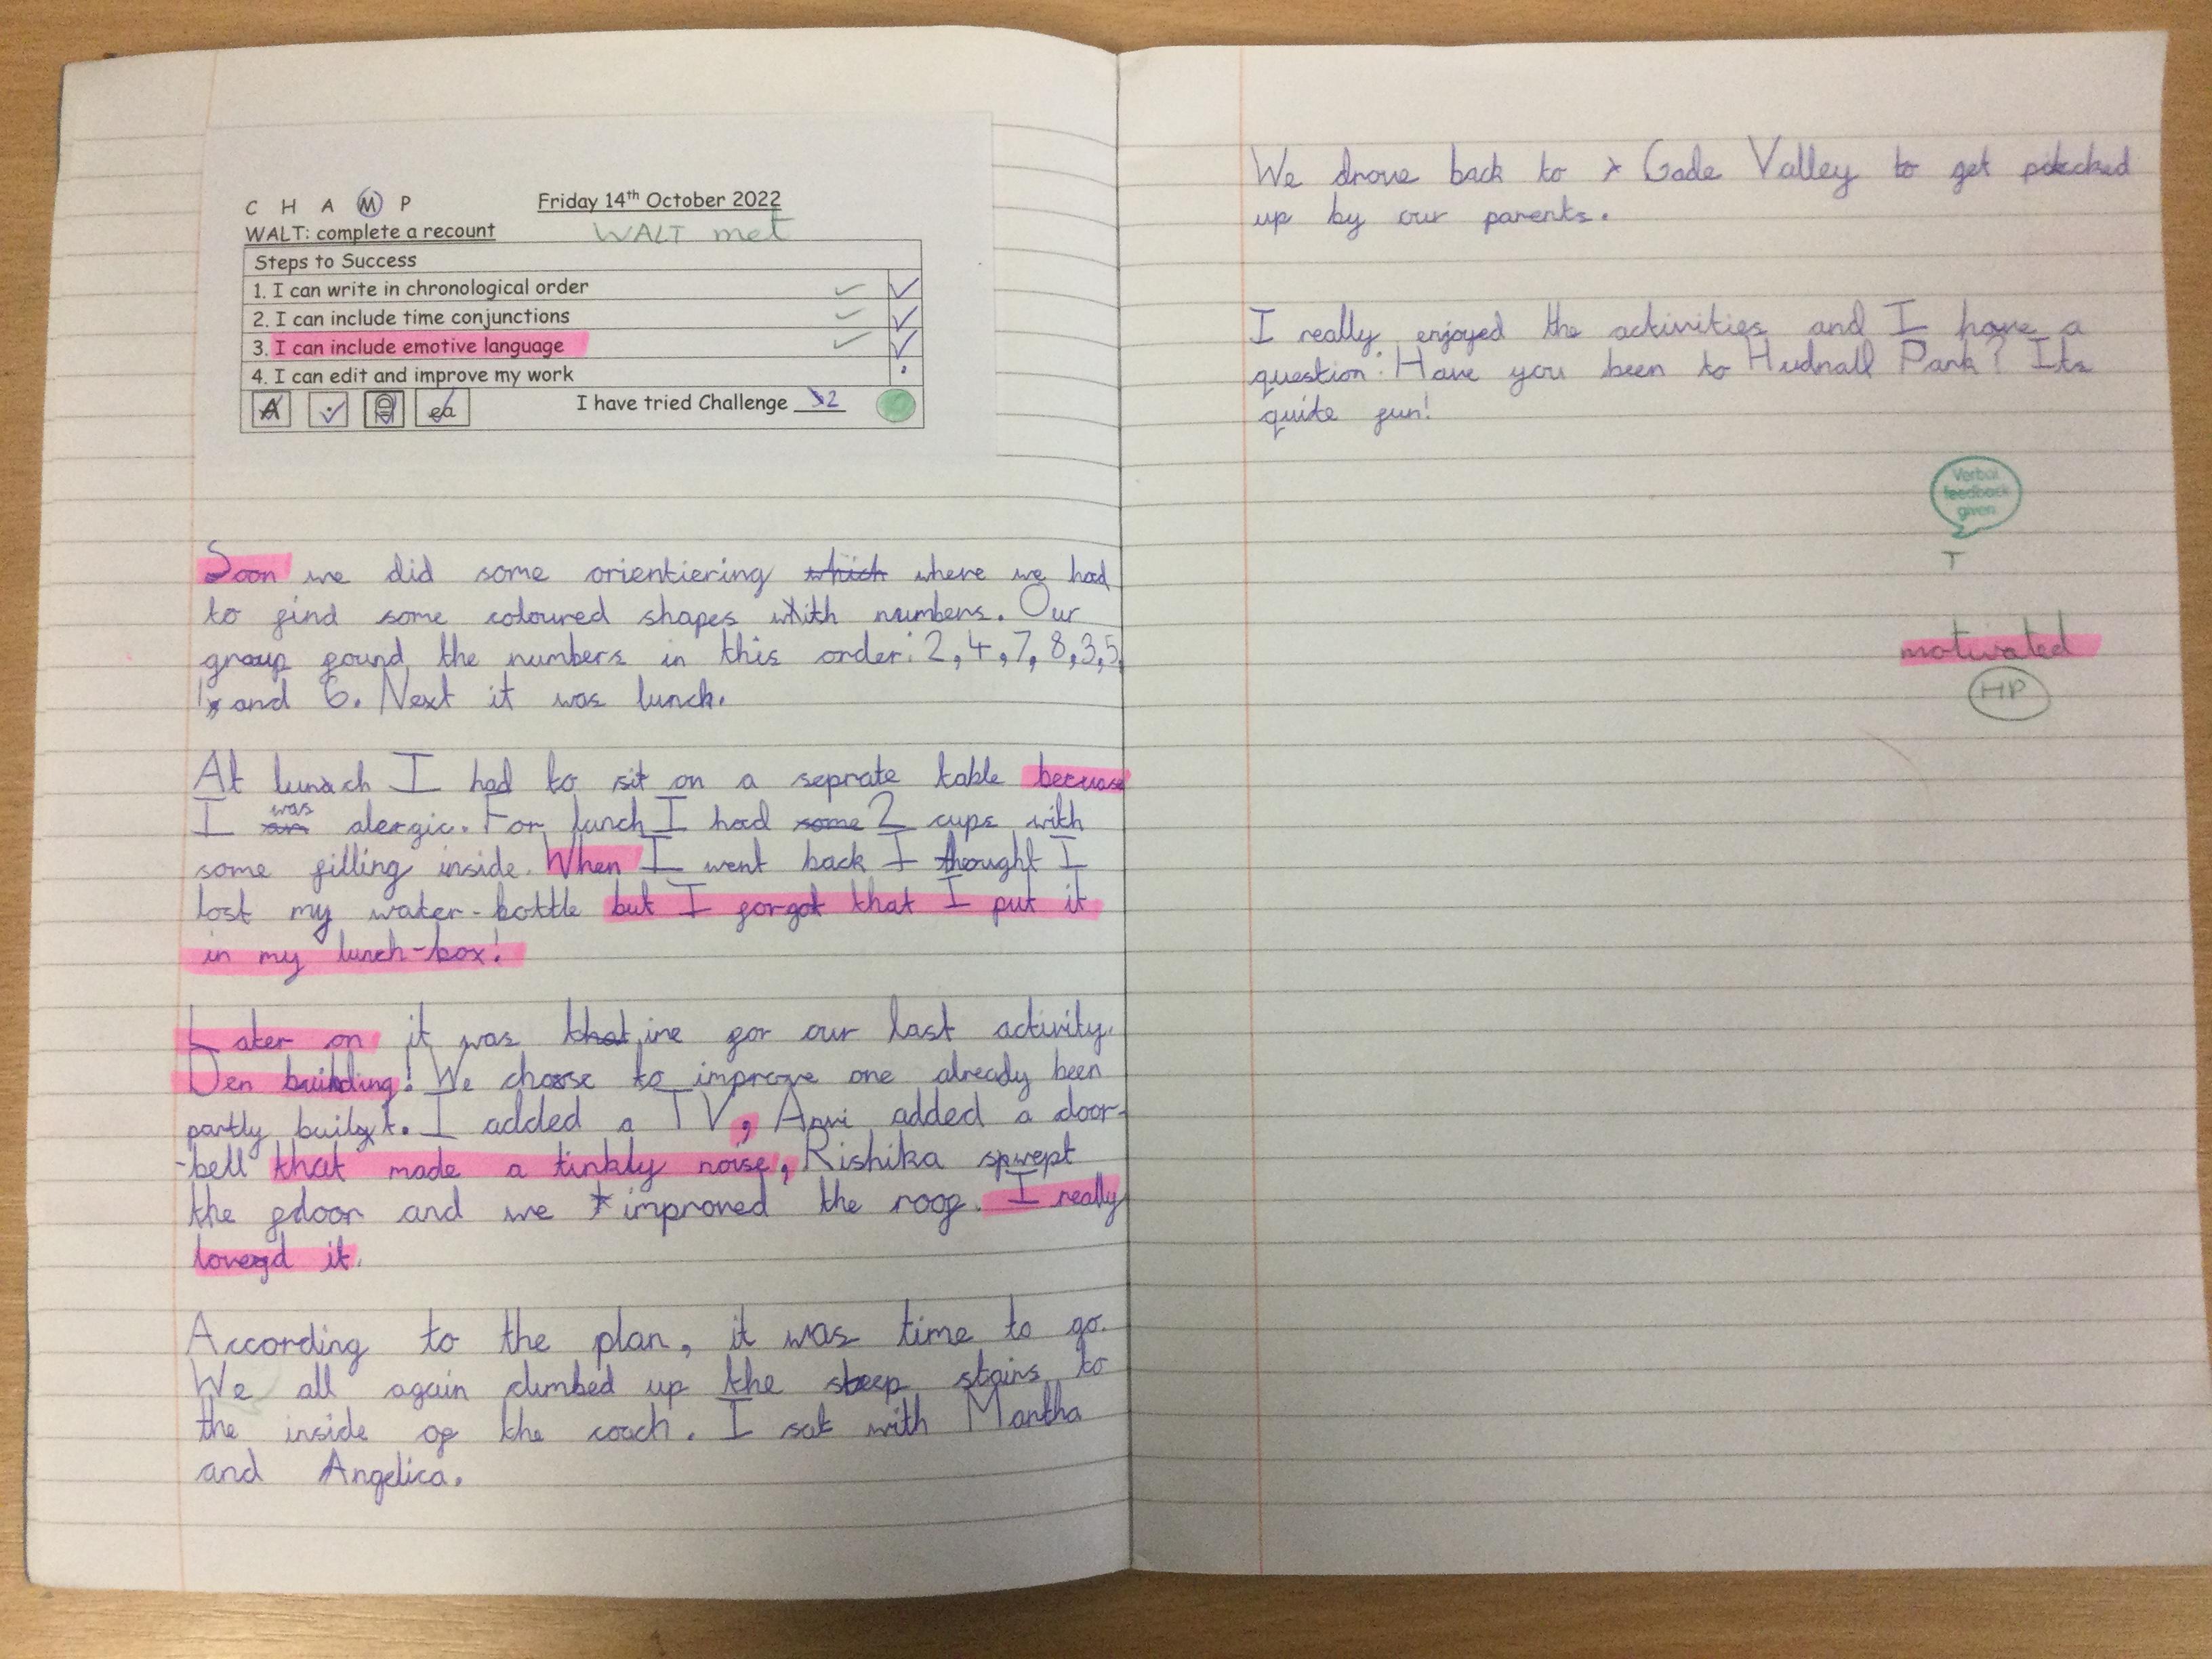 C H A M P
Friday 14th October 2022
WALT: complete a recount
WALT met
Steps to Success
1. I can write in chronological order
2. I can include time conjunctions
3. I can include emotive language
4. I can edit and improve my work
I have tried Challenge 2
Soon we did some orientiering which where we had
to find some coloured shapes with numbers. Our
group found the numbers in this order: 2, 4, 7, 8, 3, 5,
1, and 6. Next it was lunch.
At lunch I had to sit on a seprate table becuase
was
I am alergic. For lunch I had some 2 cups with
some filling inside. When I went back I thought I
lost my water-bottle but I forgot that I put it
in my lunch-box!
Later on it was time for our last activity.
Den building! We choose to improve one already been
partly built. I added a TV, Anvi added a door-
-bell that made a tinkly noise, Rishika swept
the floor and we improved the roof. I really
loved it.
According to the plan, it was time to go.
We all again climbed up the steep stairs to
the inside of the coach. I sat with Martha
and Angelica.
We drove back to Gade Valley to get picked
up by our parents.
I really enjoyed the activities and I have a
question: Have you been to Hudnall Park? Its
quite fun!
Verbal
feedback
given
T
motivated
HP